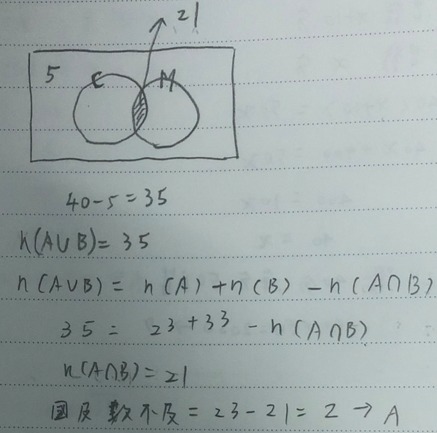 21
5 C M
40-5=35
n(A∪B)=35
n(A∪B)= n(A)+n(B)-n(A∩B)
35= 23+33-n(A∩B)
n(A∩B)=21
国及数不及=23-21=2→A